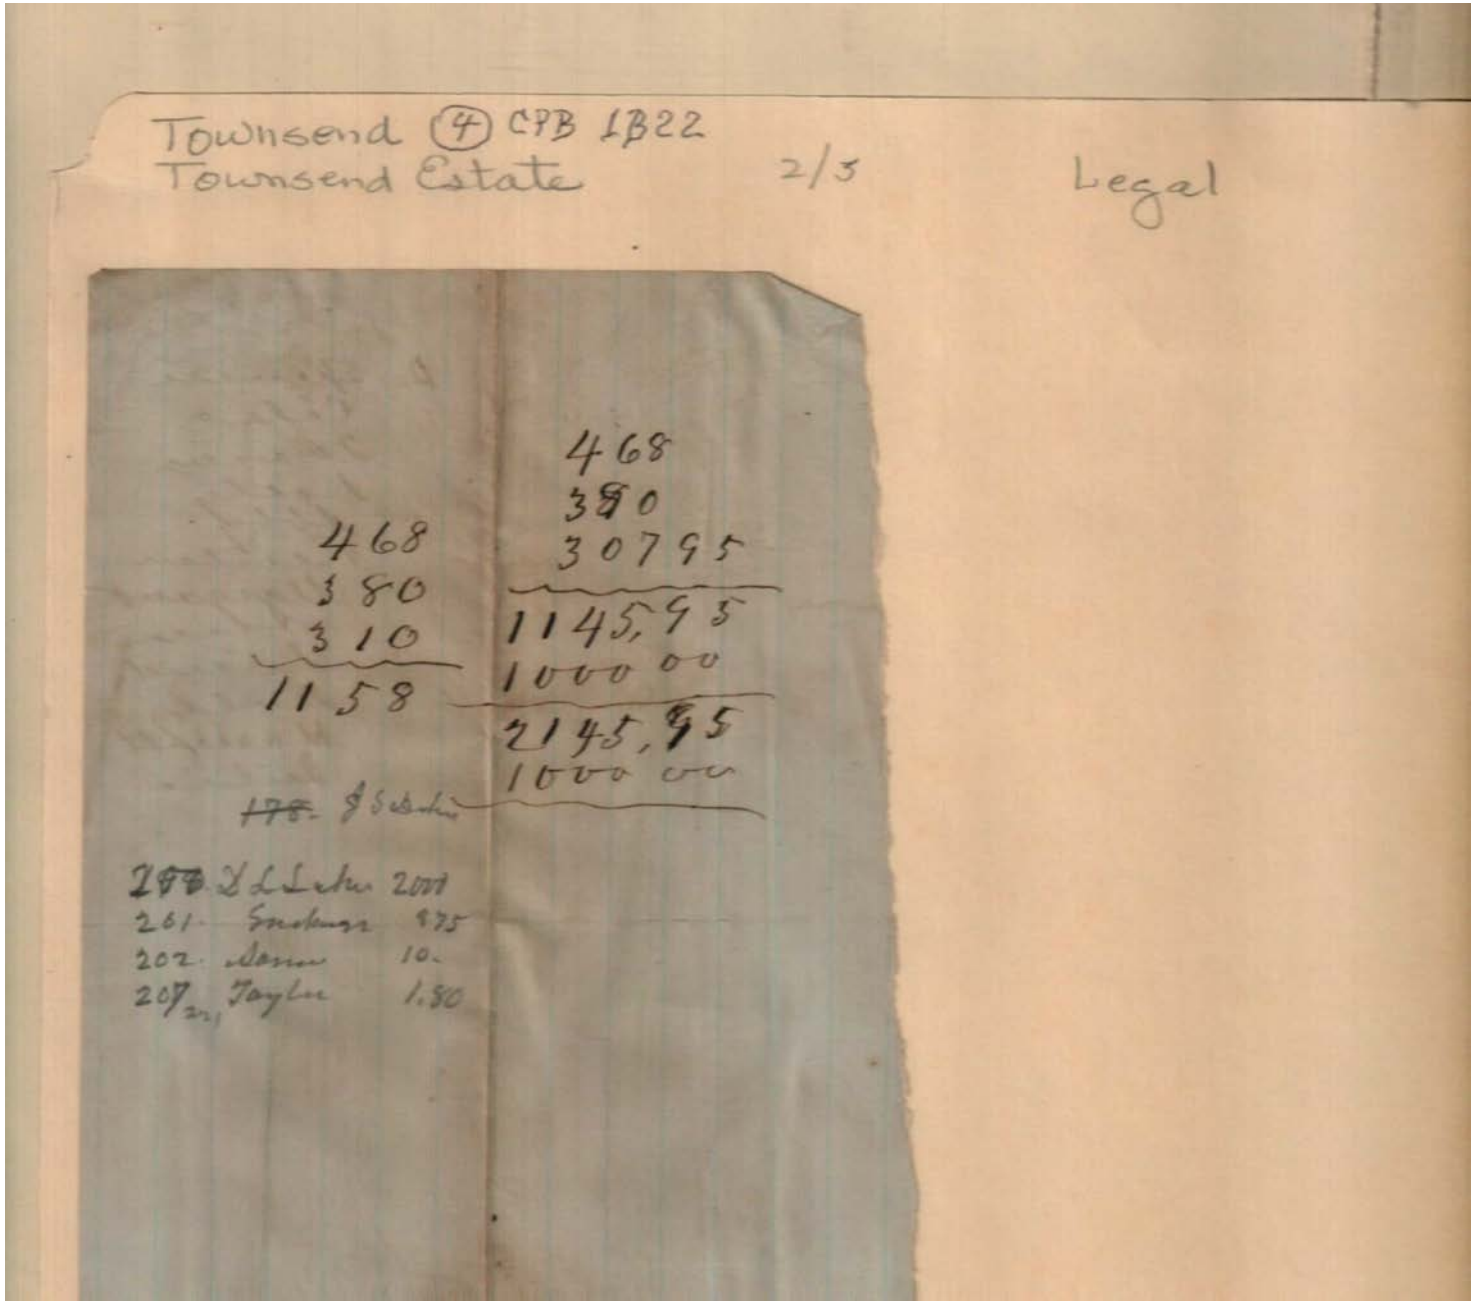 Townsend (4) CPB 1B22
Townsend Estate 2/3 Legal
468
380
310
1158
468
30795
1145,95
1000 00
2145,95
1000 00
178.
2000
201. 875
202. 10.
207 Taylor 1.80